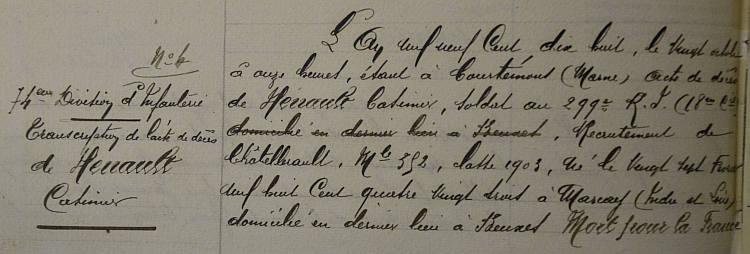 N° 6
74ème Division d'Infanterie
Transcription de l'acte de décès
de Hénault
Casimir
L'An mil neuf Cent dix huit, le Vingt octobre
à onze heures, étant à Courtémont (Marne) acte de décès
de Hénault Casimir, soldat au 299e R. I. (18e Cie)
domicilié en dernier lieu à Beuxes, Recrutement de
Châtellerault, Mle 392, classe 1903, né le Vingt sept Février
mil huit Cent quatre Vingt trois à Marçay (Indre et Loire)
domicilié en dernier lieu à Beuxes Mort pour la France